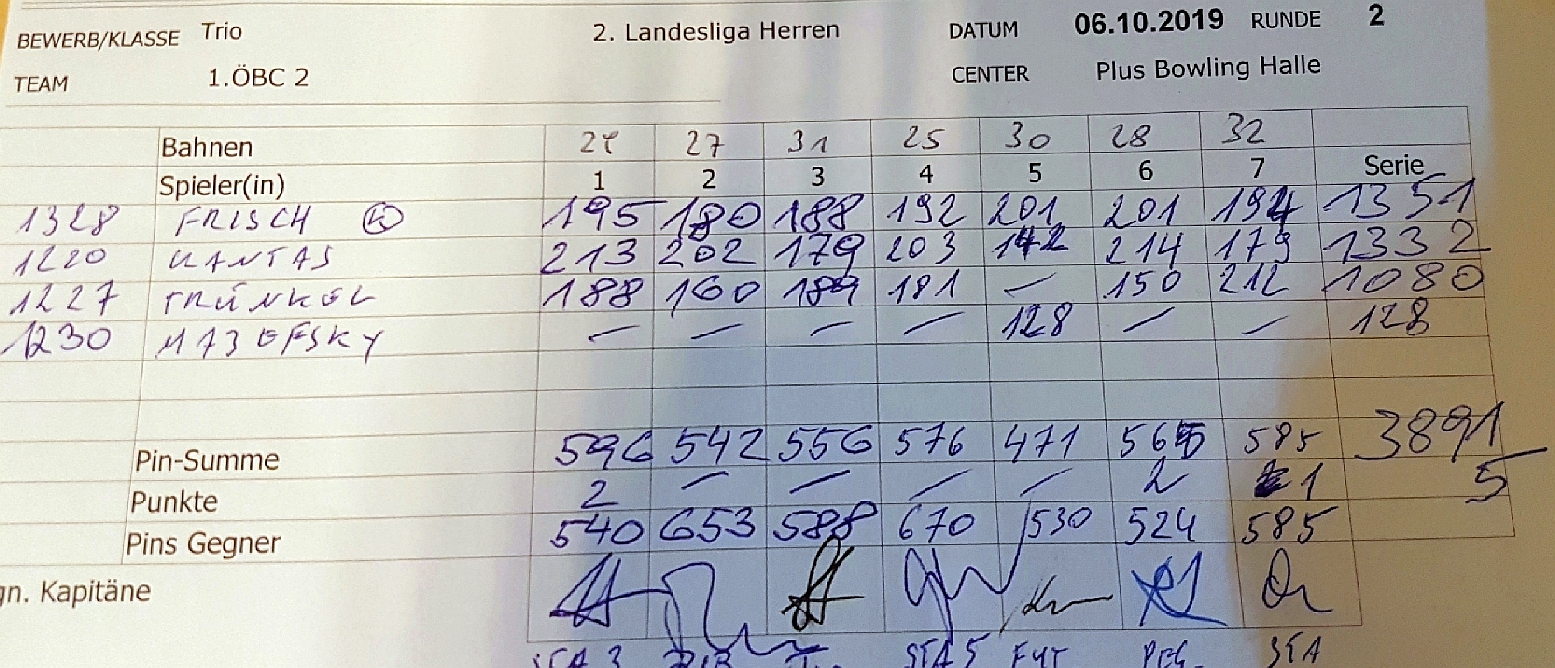 BEWERB/KLASSE Trio 2. Landesliga Herren DATUM 06.10.2019 RUNDE 2
TEAM 1.ÖBC 2 CENTER Plus Bowling Halle
Bahnen 27 31 25 30 28 32
Spieler(in) 1 2 3 4 5 6 7 Serie
1328 FRISCH K 195 180 188 192 201 201 194 1351
1220 KANTAS 213 202 179 203 142 214 179 1332
1227 TRÜNKEL 188 160 189 181 — 150 212 1080
1230 MAJEFSKY — — — — 128 — — 128
Pin-Summe 596 542 556 576 471 565 585 3891
Punkte 2 — — — — 2 1 5
Pins Gegner 540 653 588 670 530 524 585
gn. Kapitäne
STA 3 STA 5 STA